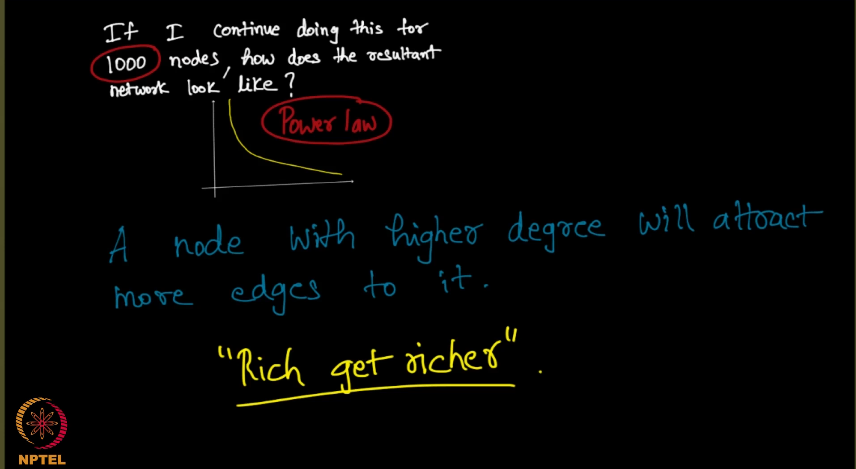 If I continue doing this for
1000 nodes, how does the resultant
network look like?
Power law
A node with higher degree will attract
more edges to it.
"Rich get richer".
NPTEL